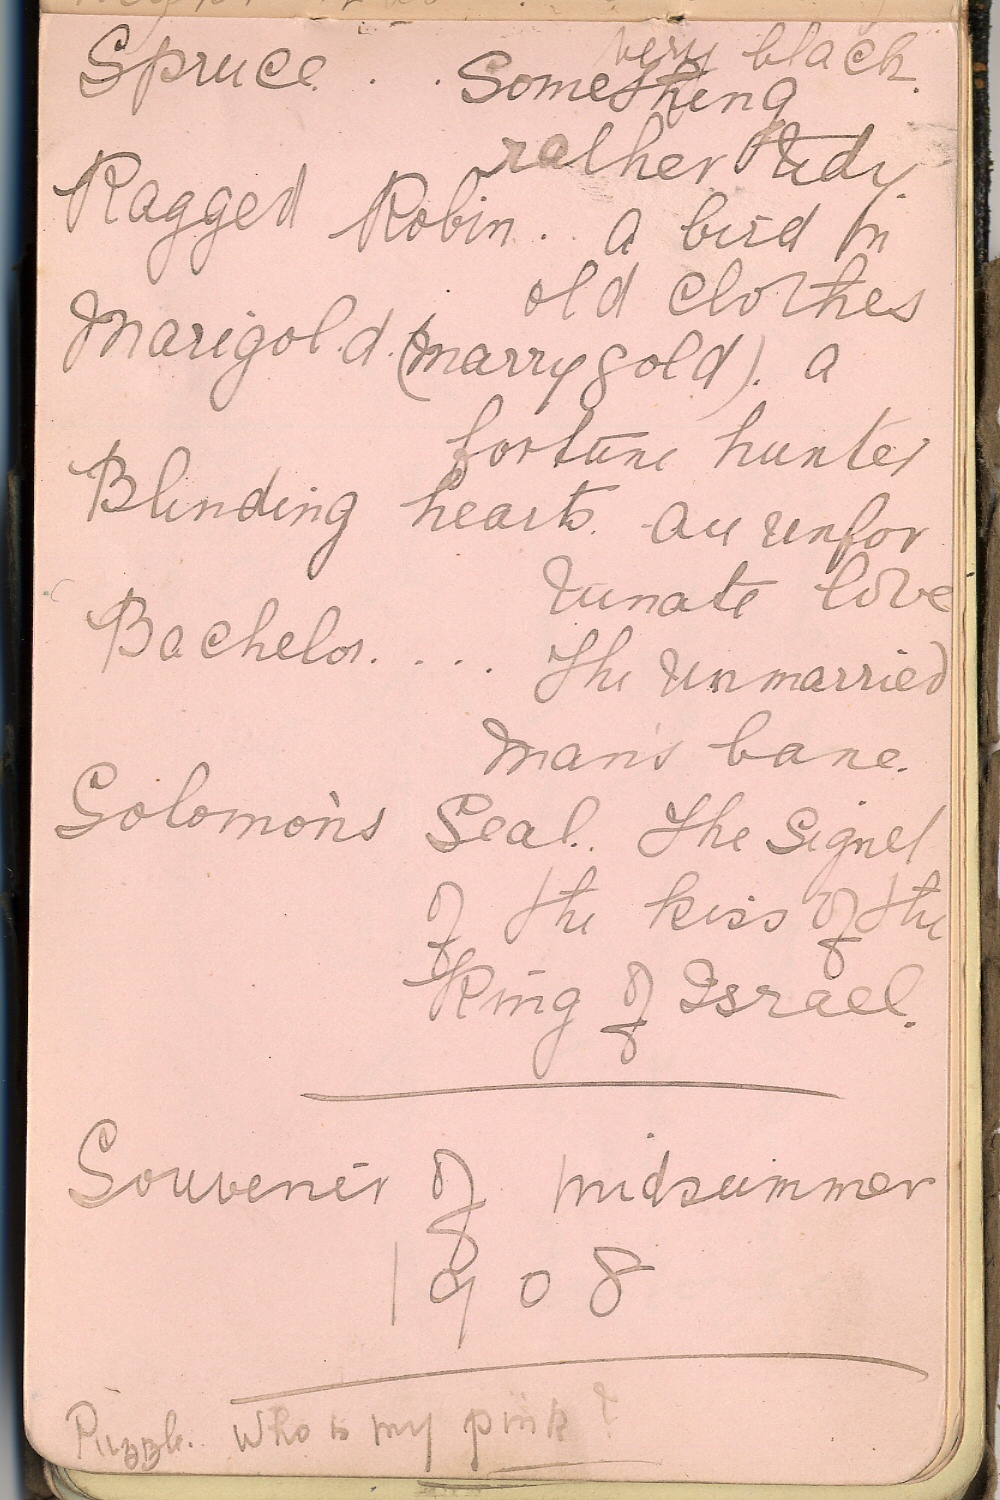 very black.
Spruce. . . Something
rather tidy.
Ragged Robin. . a bird in
old clothes
Marigold. (marrygold). a
fortune hunter
Blinding hearts. au unfor
tunate love
Bachelor. . . . The unmarried
man's bane.
Solomon's Seal. The Signet
of the kiss of the
King of Israel.
Souvenir of midsummer
1908
Puzzle. Who is my pink?